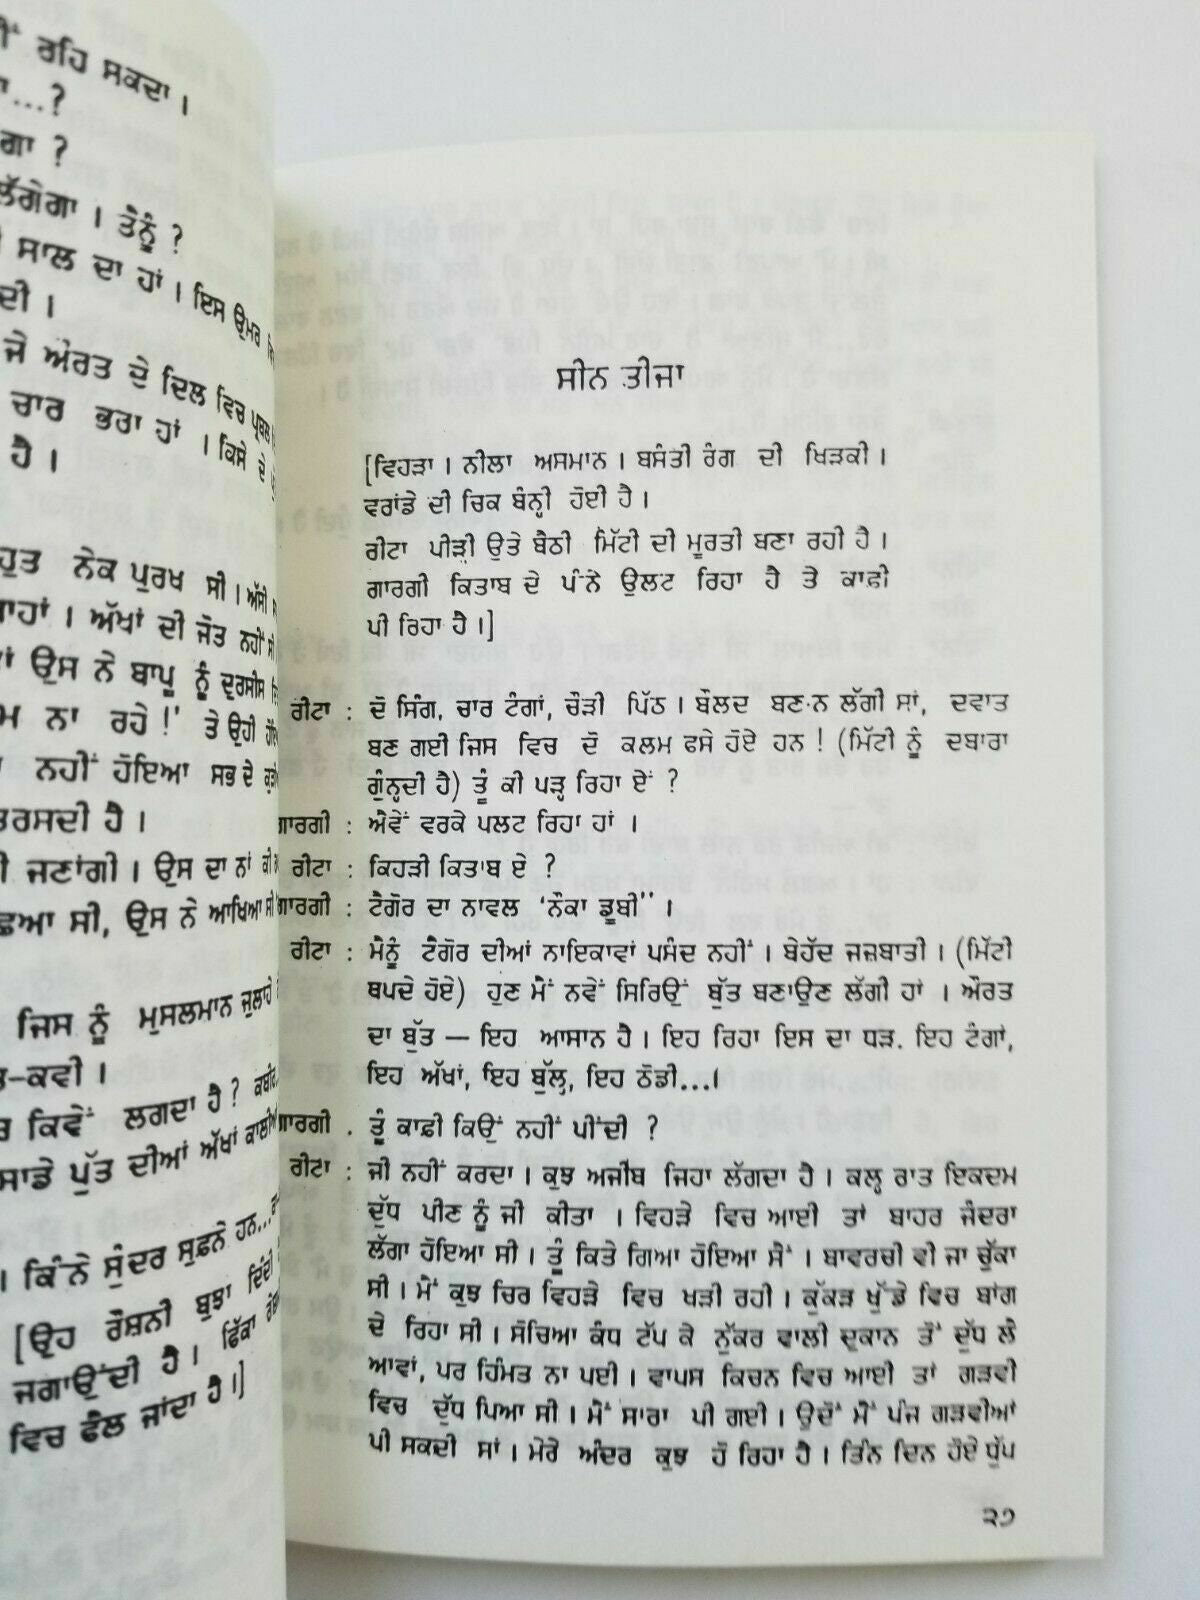 ਰਹਿ ਸਕਦਾ ।
...?
ਗਾ ?
ਲੱਗੇਗਾ । ਤੈਨੂੰ ?
ਸਾਲ ਦਾ ਹਾਂ । ਇਸ ਉਮਰ
ਦੀ ।
ਜੇ ਔਰਤ ਦੇ ਦਿਲ ਵਿਚ ਪ੍ਰਬਲ
ਚਾਰ ਭਰਾ ਹਾਂ । ਕਿਸੇ ਦੇ
ਹੈ ।
ਨੇਕ ਪੁਰਖ ਸੀ । ਅੱਸੀ
। ਅੱਖਾਂ ਦੀ ਜੋਤ ਨਹੀਂ ਸੀ
ਉਸ ਨੇ ਬਾਪੂ ਨੂੰ ਦੁਰਸੀਸ
ਨਾ ਰਹੇ !' ਤੇ ਉਹੀ ਹੋਇਆ
ਨਹੀਂ ਹੋਇਆ ਸਭ ਦੇ
ਤਰਸਦੀ ਹੈ ।
ਜਣਾਂਗੀ । ਉਸ ਦਾ ਨਾਂ ਕੀ
ਸੀ, ਉਸ ਨੇ ਆਖਿਆ ਸੀ
ਜਿਸ ਨੂੰ ਮੁਸਲਮਾਨ ਜੁਲਾਹੇ
-ਕਵੀ ।
ਕਿਵੇਂ ਲਗਦਾ ਹੈ ? ਕਬੀਰ
ਸਾਡੇ ਪੁੱਤ ਦੀਆਂ ਅੱਖਾਂ ਕਾਲੀਆਂ
। ਕਿੰਨੇ ਸੁੰਦਰ ਸੁਫ਼ਨੇ ਹਨ...
[ਉਹ ਰੌਸ਼ਨੀ ਬੁਝਾ ਦਿੰਦੀ
ਜਗਾਉਂਦੀ ਹੈ । ਫਿੱਕਾ
ਵਿਚ ਫੈਲ ਜਾਂਦਾ ਹੈ ।]
ਸੀਨ ਤੀਜਾ
[ਵਿਹੜਾ । ਨੀਲਾ ਅਸਮਾਨ । ਬਸੰਤੀ ਰੰਗ ਦੀ ਖਿੜਕੀ ।
ਵਰਾਂਡੇ ਦੀ ਚਿਕ ਬੰਨ੍ਹੀ ਹੋਈ ਹੈ ।
ਰੀਟਾ ਪੀੜ੍ਹੀ ਉਤੇ ਬੈਠੀ ਮਿੱਟੀ ਦੀ ਮੂਰਤੀ ਬਣਾ ਰਹੀ ਹੈ ।
ਗਾਰਗੀ ਕਿਤਾਬ ਦੇ ਪੰਨੇ ਉਲਟ ਰਿਹਾ ਹੈ ਤੇ ਕਾਫ਼ੀ
ਪੀ ਰਿਹਾ ਹੈ ।]
ਰੀਟਾ : ਦੋ ਸਿੰਗ, ਚਾਰ ਟੰਗਾਂ, ਚੌੜੀ ਪਿੱਠ । ਬੌਲਦ ਬਣਾਨ ਲੱਗੀ ਸਾਂ, ਦਵਾਤ
ਬਣ ਗਈ ਜਿਸ ਵਿਚ ਦੋ ਕਲਮ ਫਸੇ ਹੋਏ ਹਨ ! (ਮਿੱਟੀ ਨੂੰ ਦਬਾਰਾ
ਗੁੰਨ੍ਹਦੀ ਹੈ) ਤੂੰ ਕੀ ਪੜ੍ਹ ਰਿਹਾ ਏਂ ?
ਗਾਰਗੀ : ਐਵੇਂ ਵਰਕੇ ਪਲਟ ਰਿਹਾ ਹਾਂ ।
ਰੀਟਾ : ਕਿਹੜੀ ਕਿਤਾਬ ਏ ?
ਗਾਰਗੀ : ਟੈਗੋਰ ਦਾ ਨਾਵਲ ‘ਨੌਕਾ ਡੂਬੀ’’ ।
ਰੀਟਾ : ਮੈਨੂੰ ਟੈਗੋਰ ਦੀਆਂ ਨਾਇਕਾਵਾਂ ਪਸੰਦ ਨਹੀਂ । ਬੇਹੱਦ ਜਜ਼ਬਾਤੀ । (ਮਿੱਟੀ
ਥਪਦੇ ਹੋਏ) ਹੁਣ ਮੈਂ ਨਵੇਂ ਸਿਰਿਉਂ ਬੁੱਤ ਬਣਾਉਣ ਲੱਗੀ ਹਾਂ । ਔਰਤ
ਦਾ ਬੁੱਤ — ਇਹ ਆਸਾਨ ਹੈ । ਇਹ ਰਿਹਾ ਇਸ ਦਾ ਧੜ. ਇਹ ਟੰਗਾਂ,
ਇਹ ਅੱਖਾਂ, ਇਹ ਬੁੱਲ੍ਹ, ਇਹ ਠੋਡੀ...।
ਗਾਰਗੀ . ਤੂੰ ਕਾਫ਼ੀ ਕਿਉਂ ਨਹੀਂ ਪੀਂਦੀ ?
ਰੀਟਾ : ਜੀ ਨਹੀਂ ਕਰਦਾ । ਕੁਝ ਅਜੀਬ ਜਿਹਾ ਲੱਗਦਾ ਹੈ । ਕਲ੍ਹ ਰਾਤ ਇਕਦਮ
ਦੁੱਧ ਪੀਣ ਨੂੰ ਜੀ ਕੀਤਾ । ਵਿਹੜੇ ਵਿਚ ਆਈ ਤਾਂ ਬਾਹਰ ਜੰਦਰਾ
ਲੱਗਾ ਹੋਇਆ ਸੀ । ਤੂੰ ਕਿਤੇ ਗਿਆ ਹੋਇਆ ਸੈਂ । ਬਾਵਰਚੀ ਵੀ ਜਾ ਚੁੱਕਾ
ਸੀ । ਮੈਂ ਕੁਝ ਚਿਰ ਵਿਹੜੇ ਵਿਚ ਖੜੀ ਰਹੀ । ਕੁੱਕੜ ਖੁੱਡੇ ਵਿਚ ਬਾਂਗ
ਦੇ ਰਿਹਾ ਸੀ । ਸੋਚਿਆ ਕੰਧ ਟੱਪ ਕੇ ਨੁੱਕਰ ਵਾਲੀ ਦੁਕਾਨ ਤੋਂ ਦੁੱਧ ਲੈ
ਆਵਾਂ, ਪਰ ਹਿੰਮਤ ਨਾ ਪਈ । ਵਾਪਸ ਕਿਚਨ ਵਿਚ ਆਈ ਤਾਂ ਗੜਵੀ
ਵਿਚ ਦੁੱਧ ਪਿਆ ਸੀ । ਮੈਂ ਸਾਰਾ ਪੀ ਗਈ । ਉਦੋਂ ਮੈਂ ਪੰਜ ਗੜਵੀਆਂ
ਪੀ ਸਕਦੀ ਸਾਂ । ਮੇਰੇ ਅੰਦਰ ਕੁਝ ਹੋ ਰਿਹਾ ਹੈ । ਤਿੰਨ ਦਿਨ ਹੋਏ ਧੁੱਪ
੨੭